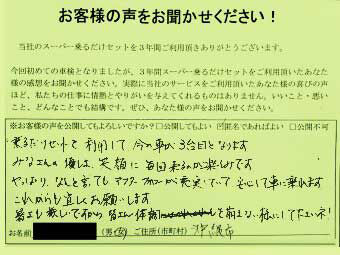 お客様の声をお聞かせください！
当社のスーパー乗るだけセットを３年間ご利用頂きありがとうございます。
今回初めての車検となりましたが、３年間スーパー乗るだけセットをご利用頂いたあなた
様の感想をお聞かせください。実際に当社のサービスをご利用頂いたあなた様の喜びの声
ほど、私たちの仕事に情熱とやりがいを与えてくれるものはありません。いいこと・悪い
こと、どんなことでも結構です。ぜひ、あなた様の声をお聞かせください。
※お客様の声を公開してもよろしいですか？□公開してもよい ☑匿名であればよい □公開不可
乗るだけセットで利用して今の車が3台目となります
みなさんの優しい笑顔に毎回来るのが楽しみです
やっぱり、なんと言ってもアフターフォローが充実していて安心して車に乗れます
これからも宜しくお願いします
皆さん体調を崩さない様にして下さいネ!
お名前 (男・女) ご住所(市町村) 沖縄市